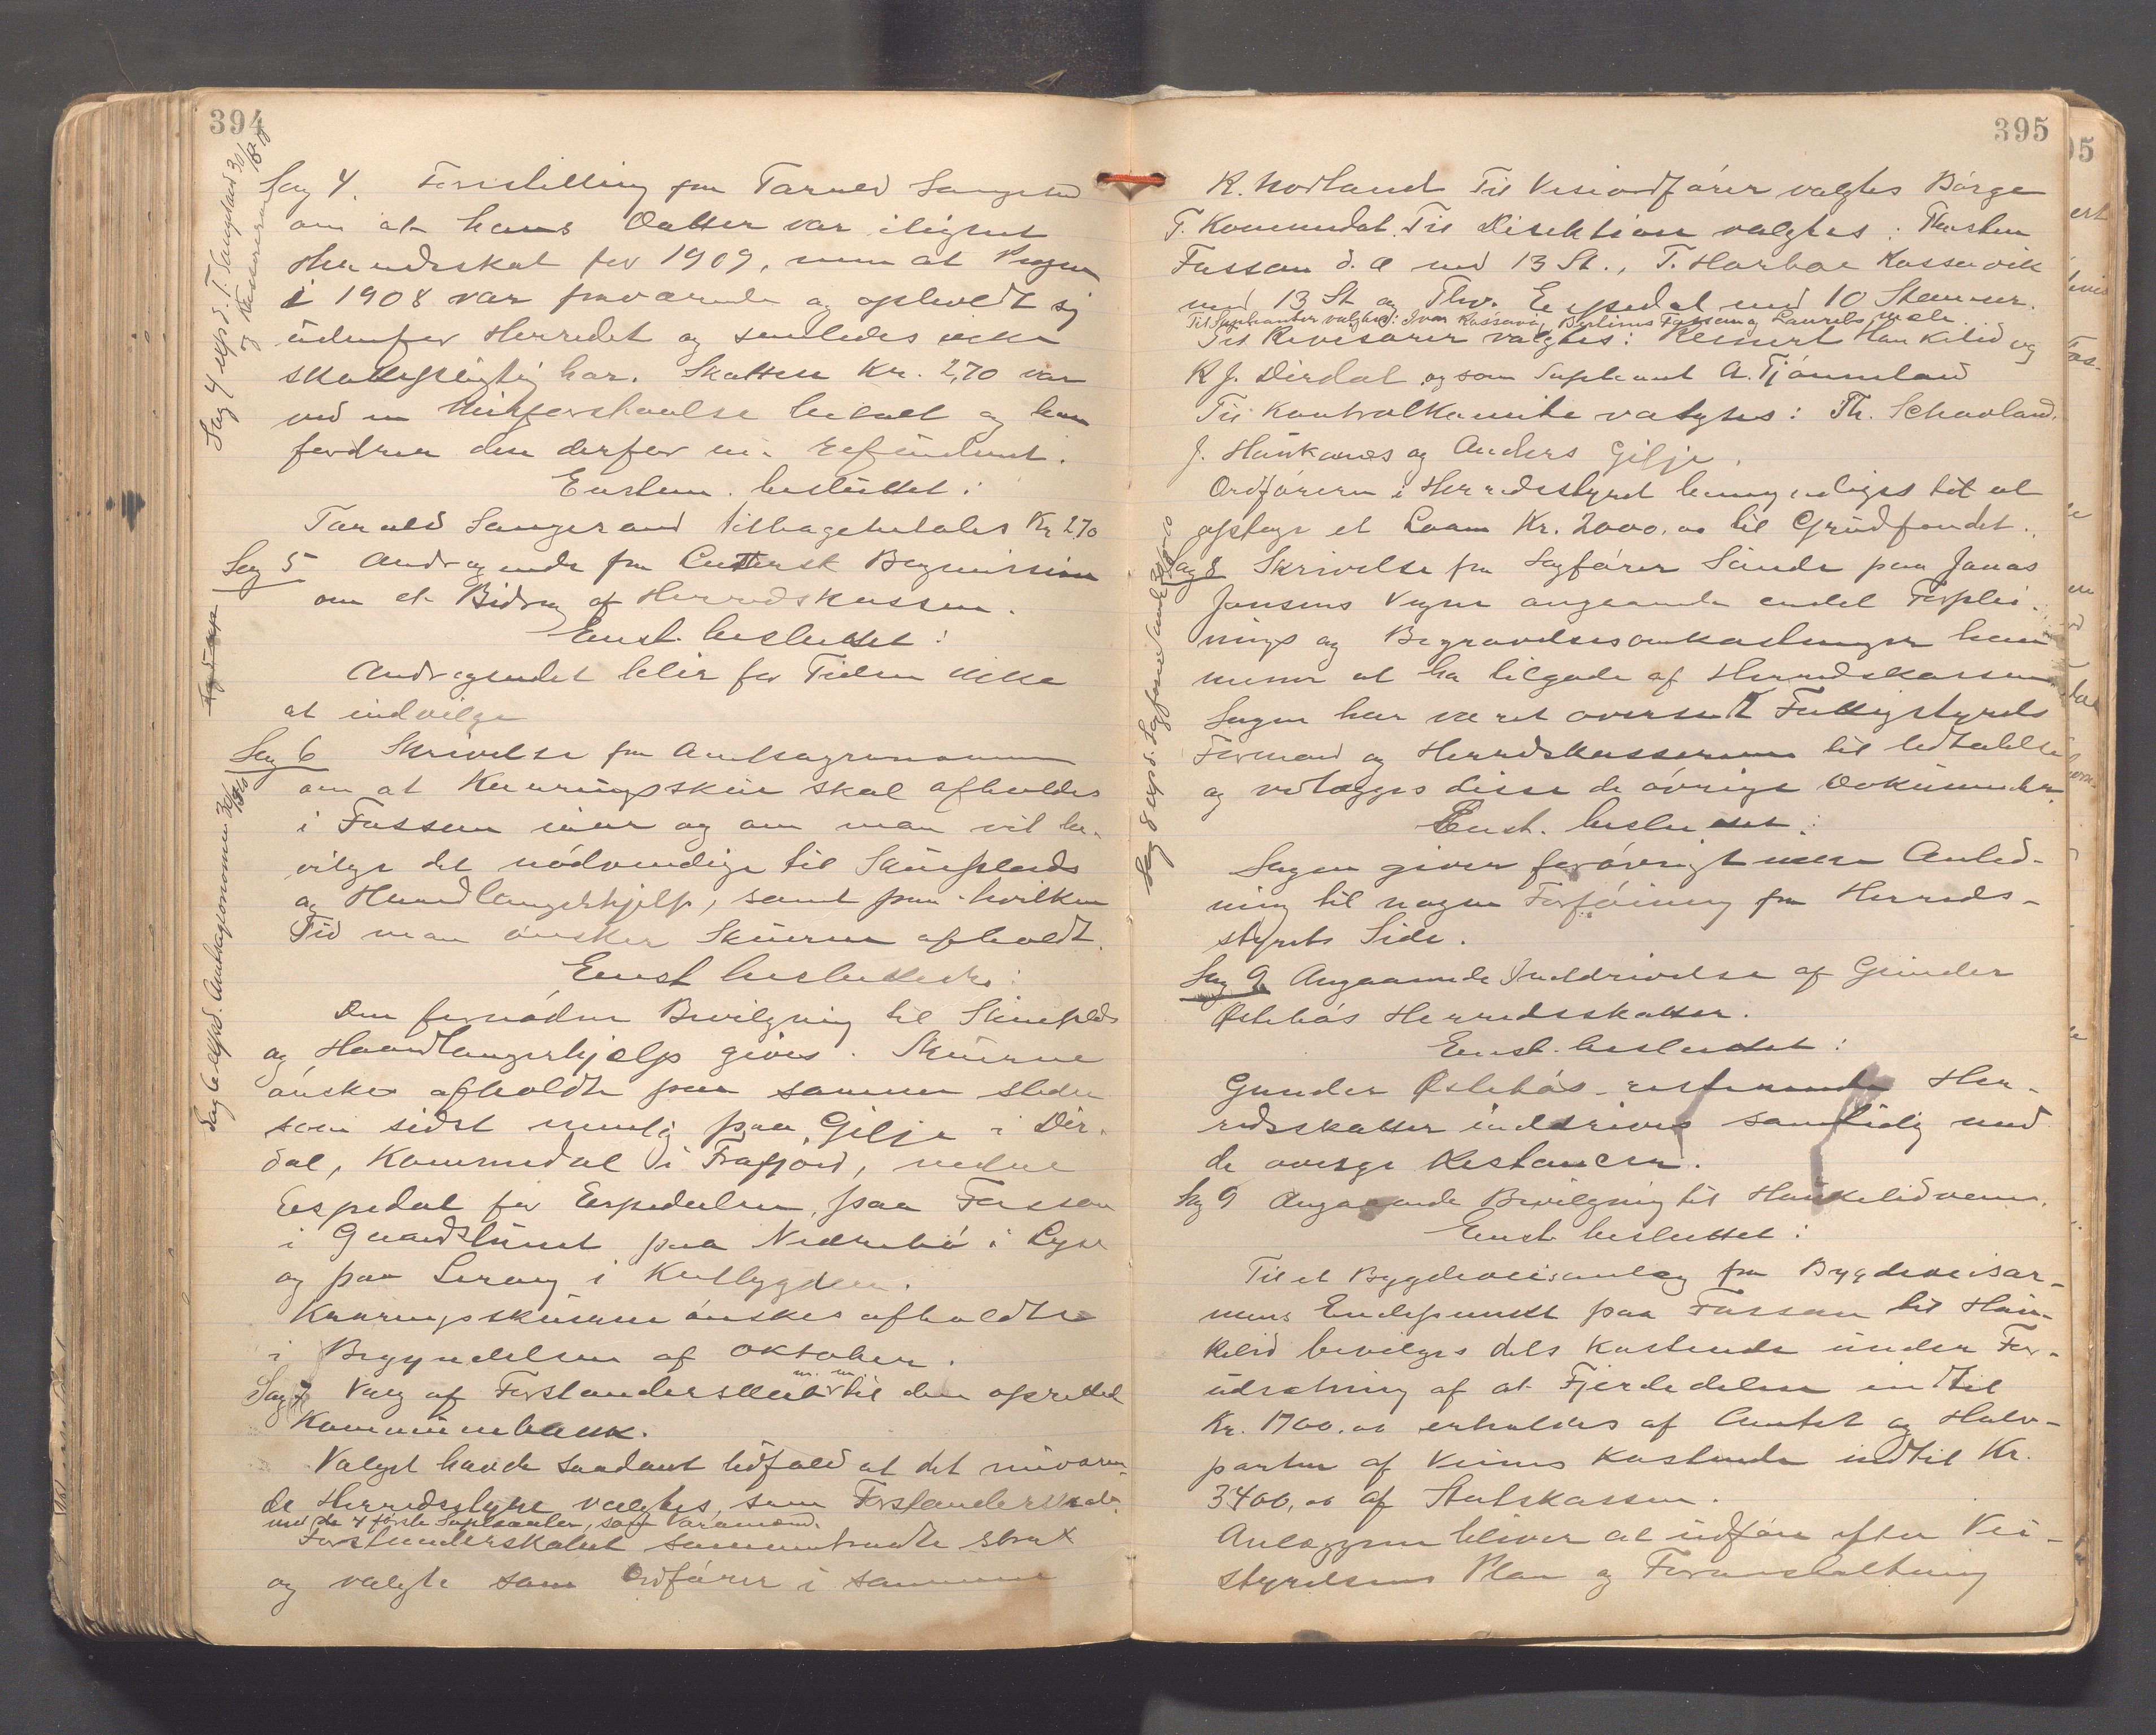 394
Sag 4 expd. T. Sangstad 30/8 10
og Kassereren
Sag 4. Forestilling fra Tarald Sangesand
om at hans Datter var ilignet
Herredsskat for 1909, men at Pigen
i 1908 var fraværende og opholdt sig
udenfor Herredet og saaledes ikke
skattepligtig her. Skatten Kr. 2,70 var
ved en Misforstaaelse betalt og han
fordrer den derfor nu refunderet.
Enstem. besluttet:
Tarald Sangesand tilbagebetales Kr 2,70
Sag 5 Andragende fra Centersk Begmission
om et Bidrag af Herredskassen.
Enst. besluttet:
Andragendet blir for Tiden ikke
at indvilge
Sag 6 Skrivelse fra Amtsagronomen
Sag 6 expd. Amtsagronomen 30/8 10
om at Kaaringsskue skal afholdes
i Fossan iaar og om man vil be-
vilge det nødvendige til Skueplads
og Haandlangerhjælp, samt paa hvilken
Tid man ønsker Skuerne afholdt.
Enst besluttedes:
Den fornødne Bevilgning til Skueplads
og Haandlangerhjælp gives. Skuerne
ønskes afholdte paa samme steder
som sidst nemlig paa Gilje i Dir-
dal, Kommedal i Frafjord, nedre
Espedal for Espedalen, paa Fossan
i Gaardstunet paa Nedrebø i Lyse
og paa Lerang i Kudbygden.
Kaaringsskuerne ønskes afholdte
i Begyndelsen af Oktober.
Sag 7 Valg af Forstanderskab m. m. til den oprettede
Kommunebank.
Valget havde saadant Udfald at det nuværen-
de Herredsstyre valgtes som Forstanderskab
med de 4 første Suppleanter, som Varamænd.
Forstanderskabet sammentraadte strax
og valgte som Ordfører i samme
395
K. Nordland Til Viseordfører valgtes Børge
T. Kommedal. Til Direktion valgtes: Thorsten
Fossan d. æ med 13 St., T. Harboe Kossevik
med 13 St og Thv. Espedal med 10 Stemmer.
Til Suppleanter valgtes: Ivar Rossavig, Bertinus Fossan og Laurits Mæle
Til Revisorer valgtes: Reinert Haukelid og
K J. Dirdal og som Supleant A. Tjønneland
Til Kontrolkomite valgtes: Th. Schavland.
J. Haukanes og Anders Gilje.
Ordføreren i Herredsstyret bemyndiges til at
optage et Laan Kr. 2000,00 til Grundfondet.
Sag 8 expd. Sagfører Sande 30/8 10
Sag 8 Skrivelse fra Sagfører Sande paa Jonas
Jonsens Vegne angaaende endel Forplei-
nings og Begravelsesomkostninger han
mener at ha tilgode af Herredskassen.
Sagen har været oversendt Fattigstyrets
Formand og Herredskassereren til Udtalelse
og vedlægges disse de øvrige Dokumenter.
Enst. besluttet:
Sagen giver forøvrigt ikke Anled-
ning til nogen Forføining fra Herreds-
styrets Side.
Sag 9 Angaaende Inddrivelse af Gunder
Østebøs Herredsskatter.
Enst. besluttet:
Gunder Østebøs resterende Her-
redsskatter inddrives samtidig med
de øvrige Restancer.
Sag 9 Angaaende Bevilgning til Haukelidveien.
Enst. besluttet:
Til et Bygdeveisanlæg fra Bygdeveisar-
mens Endepunkt paa Fossan til Hau-
kelid bevilges dels Kostende under For-
udsætning af at Fjerdedelen indtil
Kr. 1700.00 erholdes af Amtet og Halv-
parten af Veiens Kostende indtil Kr.
3400,00 af Statskassen.
Anlæggene bliver at udføre efter Vei-
styrelsens Plan og Foranstaltning